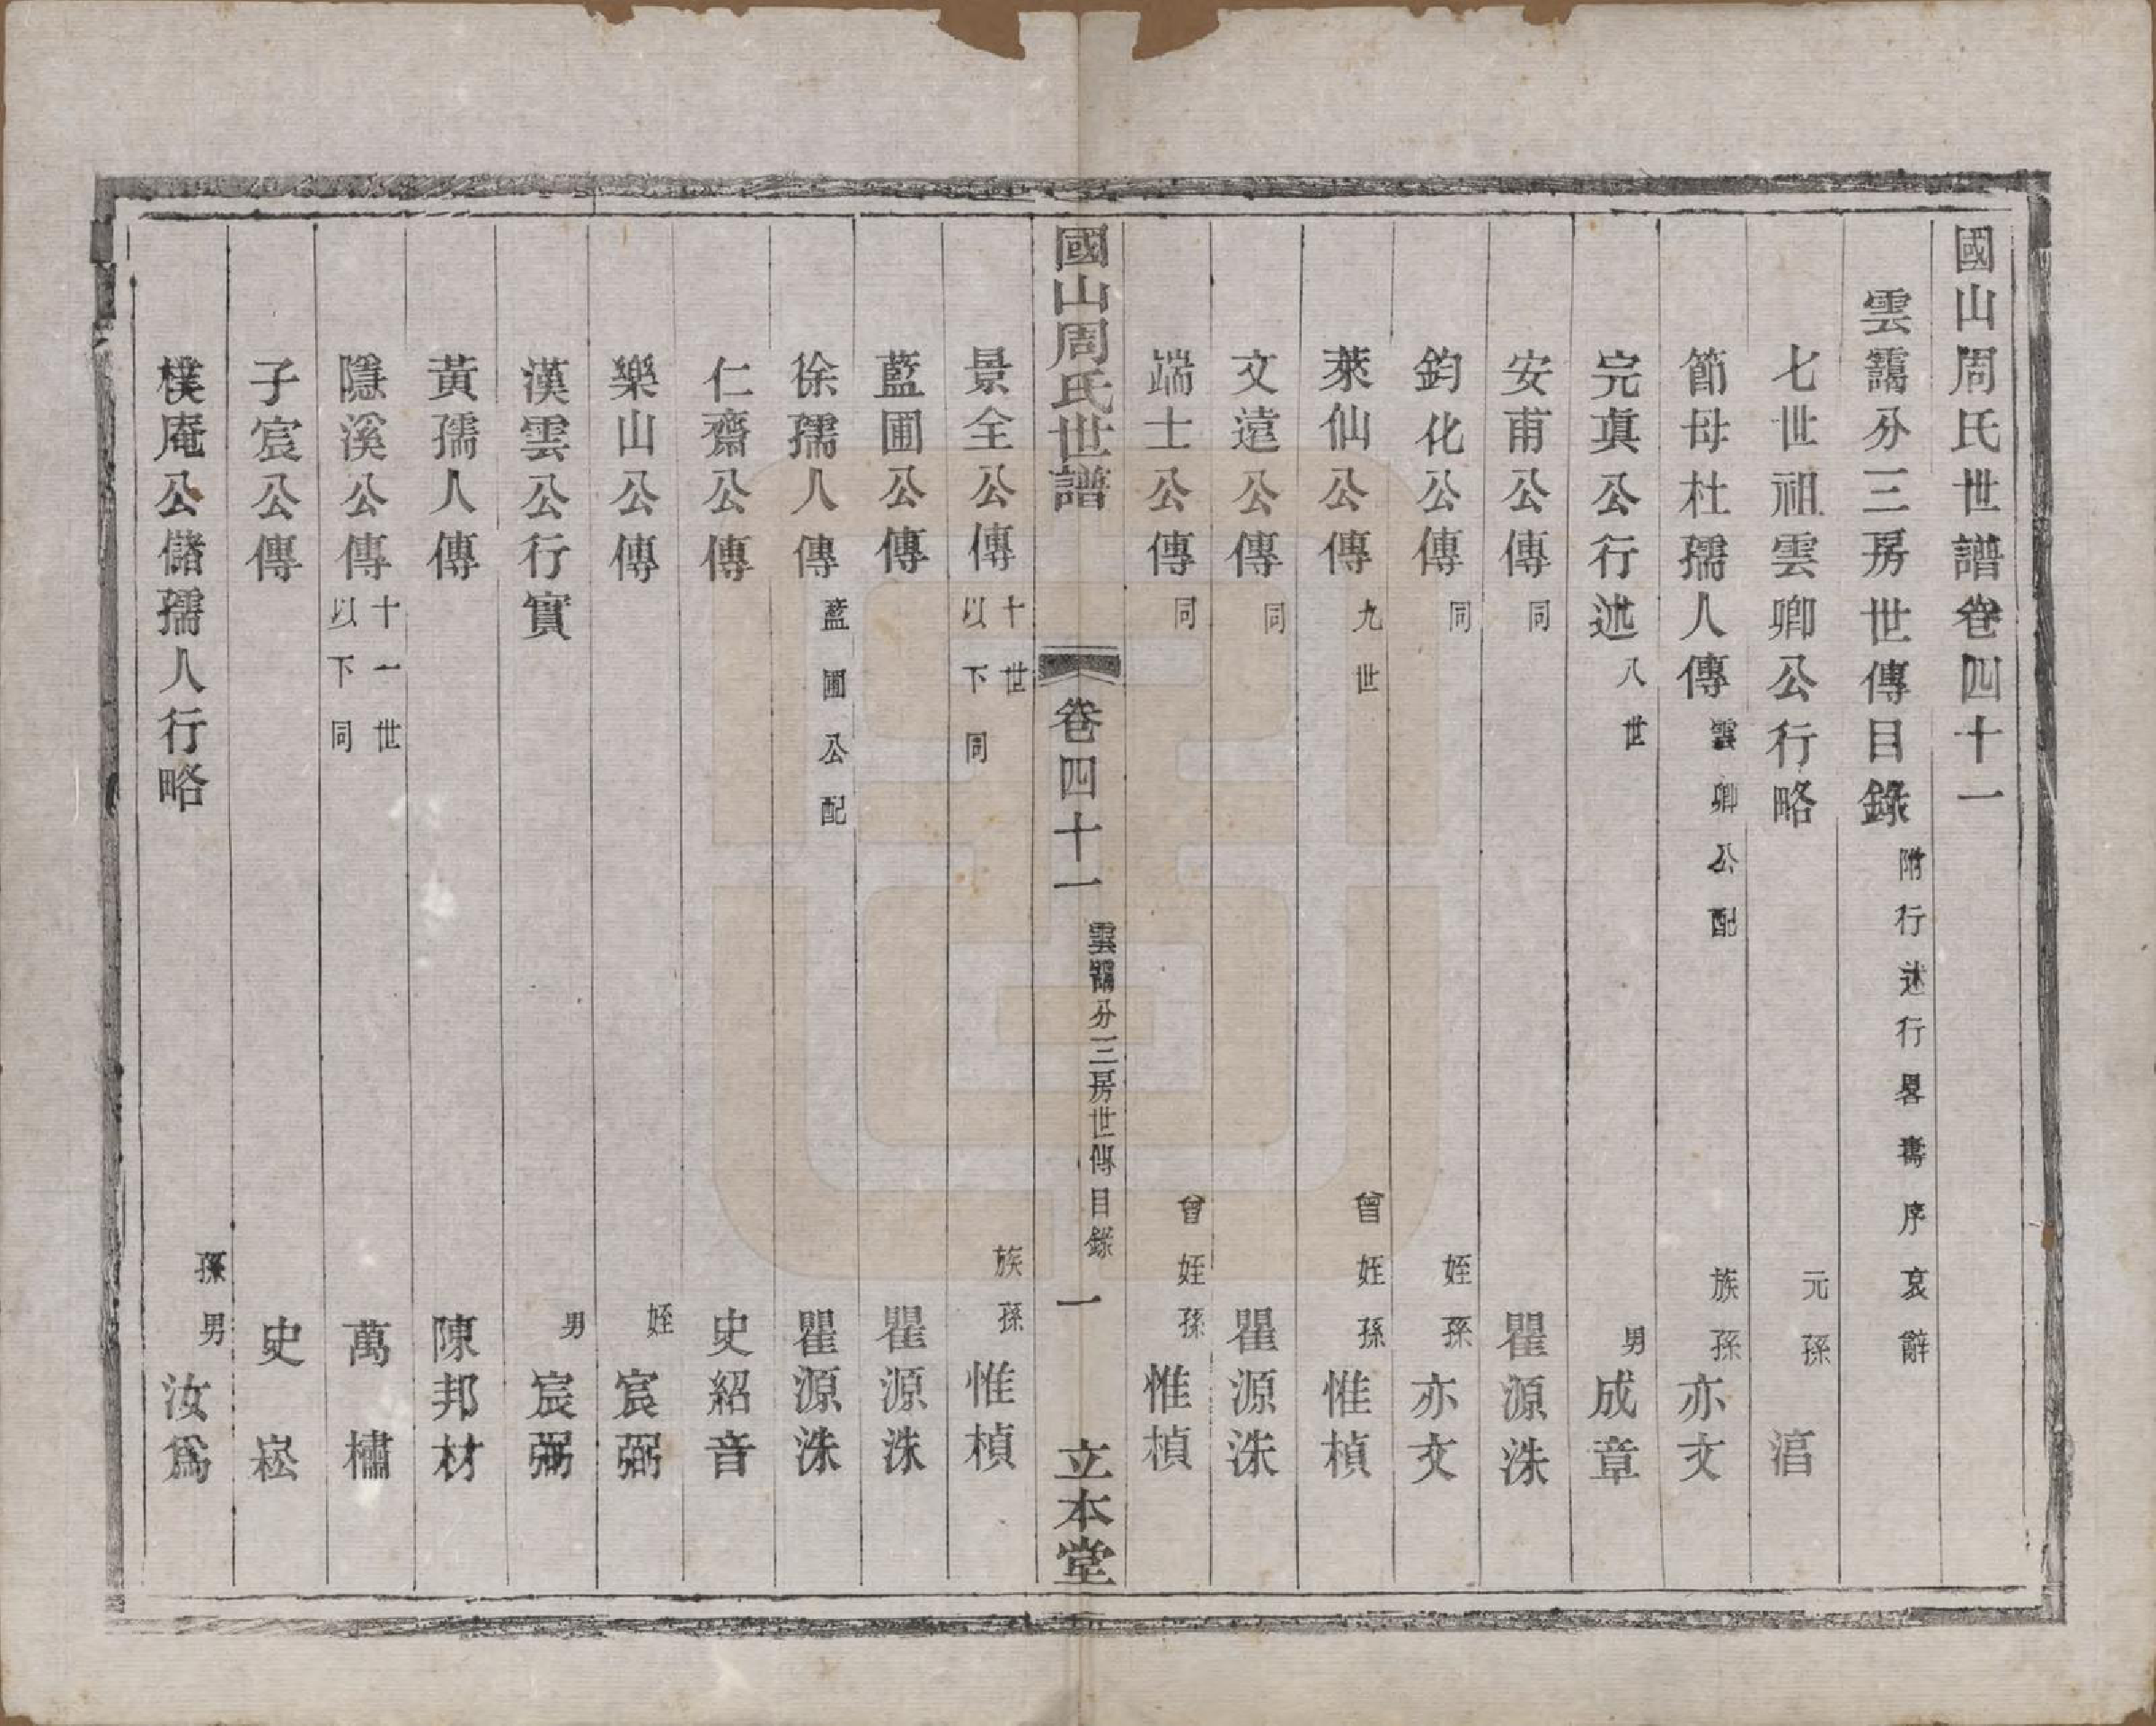 國山周氏世譜卷四十一
雲靄分三房世傳目錄 附行述行畧壽序哀辭
七世祖雲卿公行略 元孫 濳
節母杜孺人傳 雲卿公配 族孫 亦文
完眞公行述 八世 男 成章
安甫公傳 同 瞿源洙
鈞化公傳 同 姪孫 亦文
萊仙公傳 九世 曾姪孫 惟楨
文遠公傳 同 瞿源洙
端士公傳 同 曾姪孫 惟楨
國山周氏世譜 卷四十一 雲靄分三房世傳目錄 一 立本堂
景全公傳 十世以下同 族孫 惟楨
藍圃公傳 瞿源洙
徐孺人傳 藍圃公配 瞿源洙
仁齋公傳 史紹音
樂山公傳 姪 宸弼
漢雲公行實 男 宸弼
黃孺人傳 陳邦材
隱溪公傳 十一世以下同 萬橚
子宸公傳 史崧
樸庵公儲孺人行略 孫男 汝爲